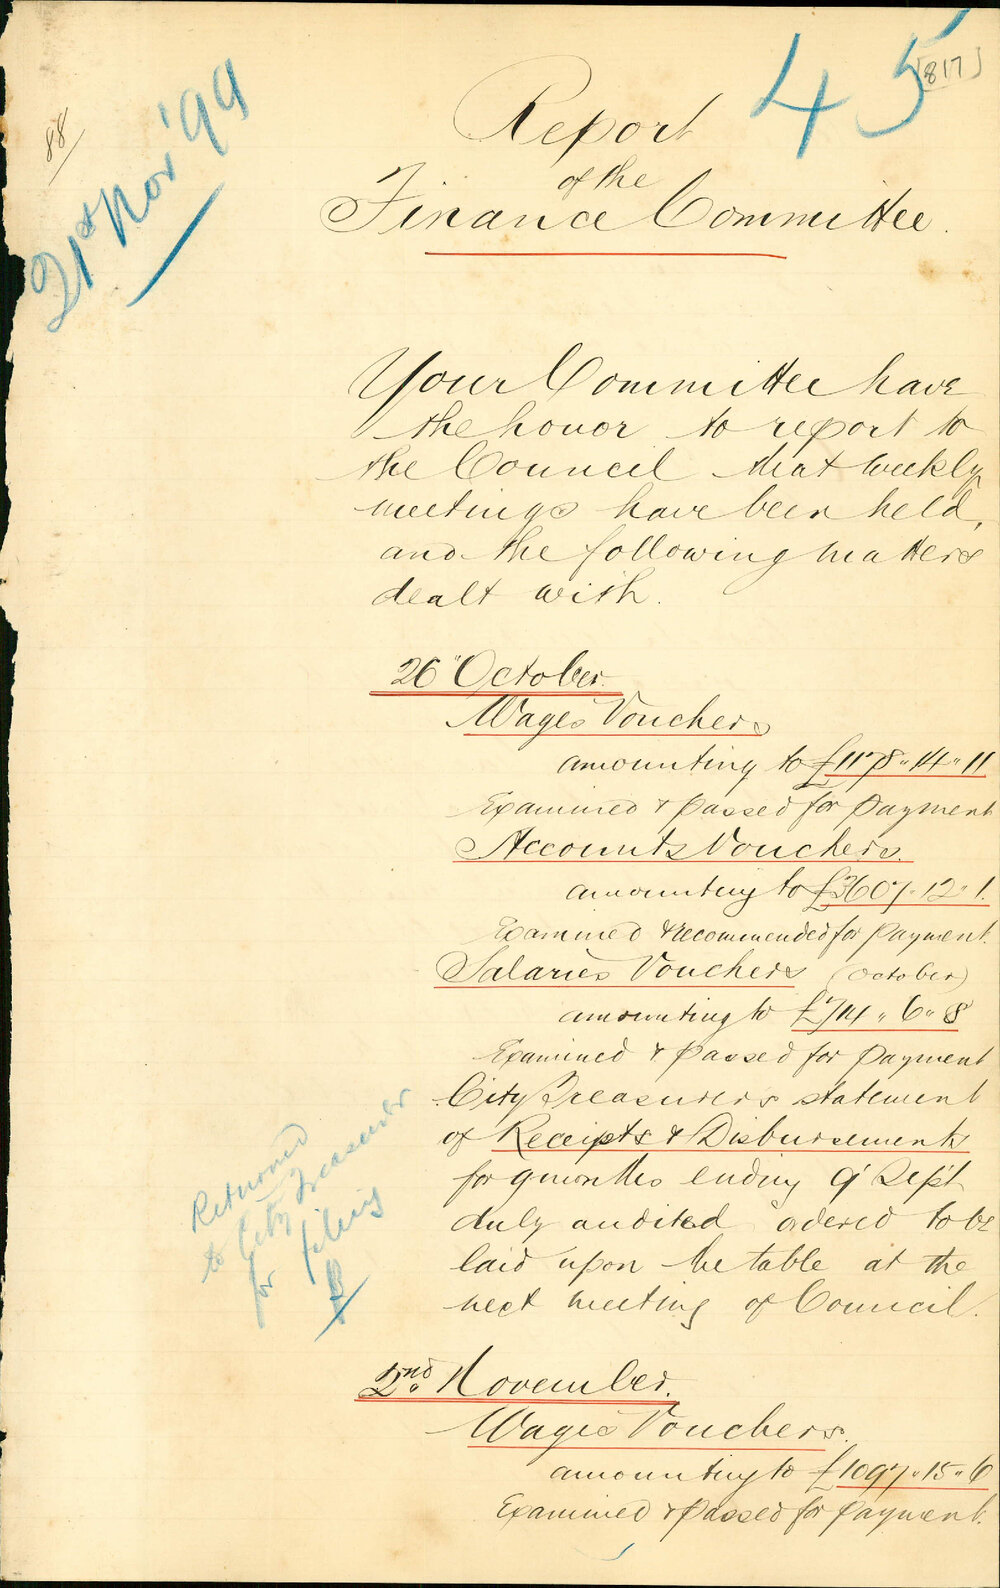 45
[817]
88/
21st Nov '99
Report
of the
Finance Committee.
Your Committee have
the honor to report to
the Council that weekly
meetings have been held,
and the following matters
dealt with.
26" October.
Wages Vouchers
amounting to £1178.. 14.. 11
Examined & passed for payment
Accounts Vouchers.
amounting to £3607.. 12.. 1.
Examined & recommended for payment.
Salaries Vouchers (October)
amounting to £714.. 6.. 8
Examined & passed for payment
City Treasurers statement
of Receipts & Disbursements
for 9 months ending 9' Sept
duly audited ordered to be
laid upon the table at the
next meeting of Council.
Returned
to City Treasurer
for filing
2nd November.
Wages Vouchers.
amounting to £1097.. 15.. 6
Examined & passed for payment.